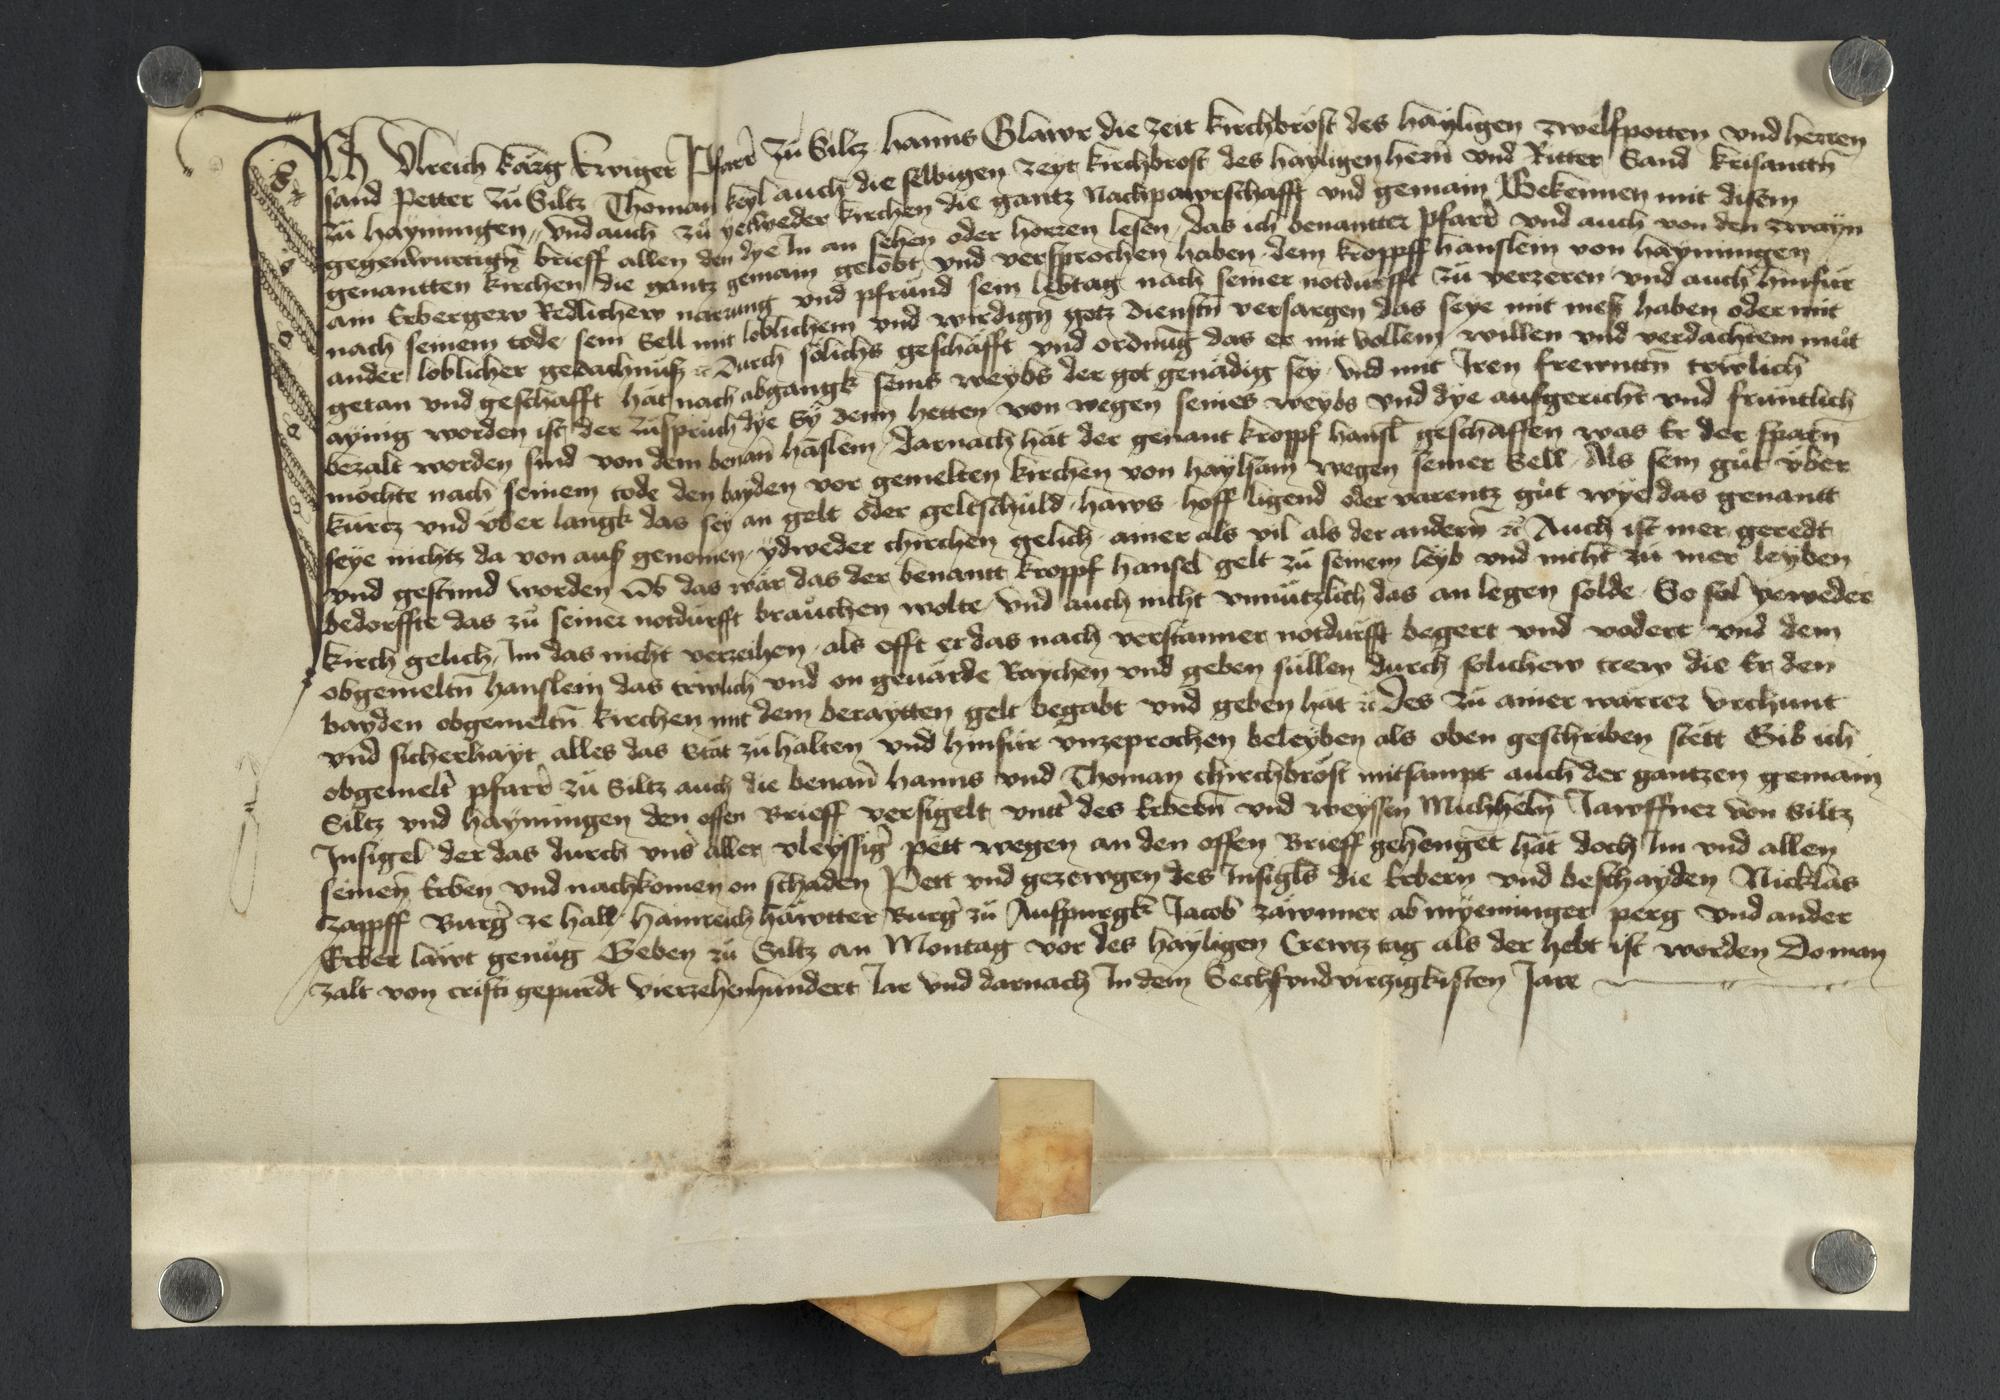 Ich Vlreich kärg Ewiger Pfarr̄ zu Siltz hanns Glawr die zeit kirchbröst des hayligen zwelfpotten vnd herren
sand Petter zu Siltz Thoman keyl auch die selbigen zeyt kirchbrost des hayligen hern̄ vnd Ritter Sand krisanttn̄
zu haymingen vnd auch zu yetweder kirchen die gantz Nachpawrschafft vnd gemain Bekennen mit disem
gegenwurtign̄ brieff allen den dye In an sehen oder horren lesen das ich benantter pfarr̄ vnd auch von den zwayn
genantten kirchen die gantz gemain gelobt vnd versprochen haben dem kroppff hanslein von haymingen
ain Erbergew Redlichew narrung vnd pfrund sein lebtag nach seiner notdurfft zu verzeren vnd auch hinfur
nach seinem tode sein Sell mit loblichem vnd wirdign̄ gotz dienstn̄ versargen das seye mit mess haben oder mit
ander loblicher gedachnuss ꝛc Durch solichs geschäfft vnd ordnūg das er mit vollem willen vnd verdachtem muͦt
getan vnd geschafft hät nach abgangk seins weybs der got genädig sey vnd mit Iren frewnttn̄ trewlich
aynig worden ist der zuspruch dye Sy denn hetten von wegen seines weybs vnd dye ausgericht vnd fruntlich
bezalt worden sind von dem benan̄ hāslein darnach hät der genant kroppf hansl̄ geschaffen was Er der sparn̄
möchte nach seinem tode den bayden vor gemelten kirchen von haylsam wegen seiner Sell Als sein guͦt vber
kurtz vnd vber langk das sey an gelt oder geltschuld haws hoff ligend oder varentz guͦt wye das genantt
seye nichtz da von auss genomen ydweder chirchen gelich ainer als vil als der andern̄ ꝛc Auch ist mer geredt
vnd gestund worden Ob das wär das der benantt kroppf hansel gelt zu seinem leyb vnd nicht zu mer leyben
bedorffte das zu seiner notdurfft brauchen wolte vnd auch nicht vnnutzlich das an legen solde So sol yeweder
kirch gelich Im das nicht verzeihen als offt er das nach verstanner notdurfft begert vnd vodert vnd dem
obgemeltn̄ hanslein das trewlich vnd on geuärde Raychen vnd geben sullen durch solichew trew die Er den
bayden obgemeltn̄ kirchen mit dem beraytten gelt begabt vnd geben hät ꝛc Des zu ainer warrer vrchunt
vnd sicherhayt alles das Stät zu halten vnd hinfur vnzeprochen beleyben als oben geschriben stett Gib ich
obgemelt̄ pfarr̄ zu Siltz auch die benan̄ hanns vnd Thoman chirchbröst mitsampt auch der gantzen gemain
Siltz vnd haymingen den offen Brieff versigelt vntt̄ des Erbern̄ vnd weyssen Michheln̄ Jawffner von Siltz
Insigel der das durch vns̄ aller vleyssiḡ pett wegen an den offen Brieff gehenget hät doch Im vnd allen
seinen Erben vnd nachkomen on schaden Pett vnd gezewgen des Insigls die Erbern vnd beschayden Nicklas
zappff Burḡ ze hall hainreich häwtter Burḡ zu Auspurgk Jacob zäwnner ab myeminger perg vnd ander
Erber läwt genuͦg Geben zu Siltz an Montag vor des hayligen Crewtz tag als der hebt ist worden Do man
zalt von cristi gepurdt vierzehenhundert Jar vnd darnach In dem Sechsvndvirzigkisten Jare